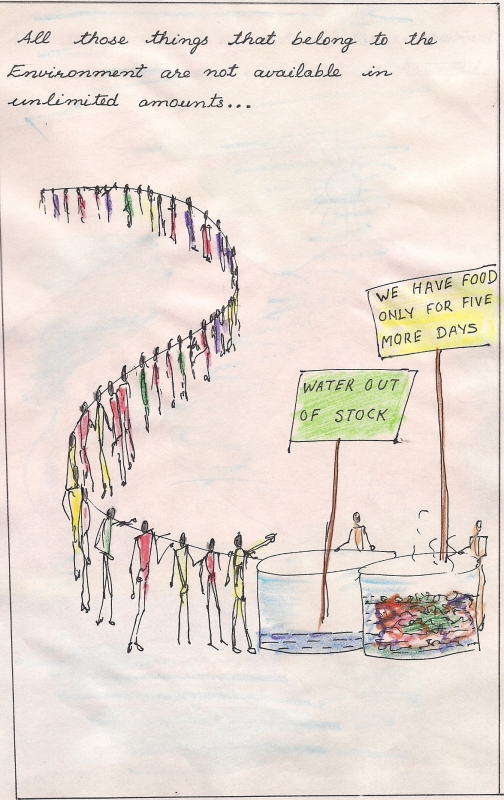 All those things that belong to the
Environment are not available in
unlimited amounts...
WE HAVE FOOD
ONLY FOR FIVE
MORE DAYS
WATER OUT
OF STOCK